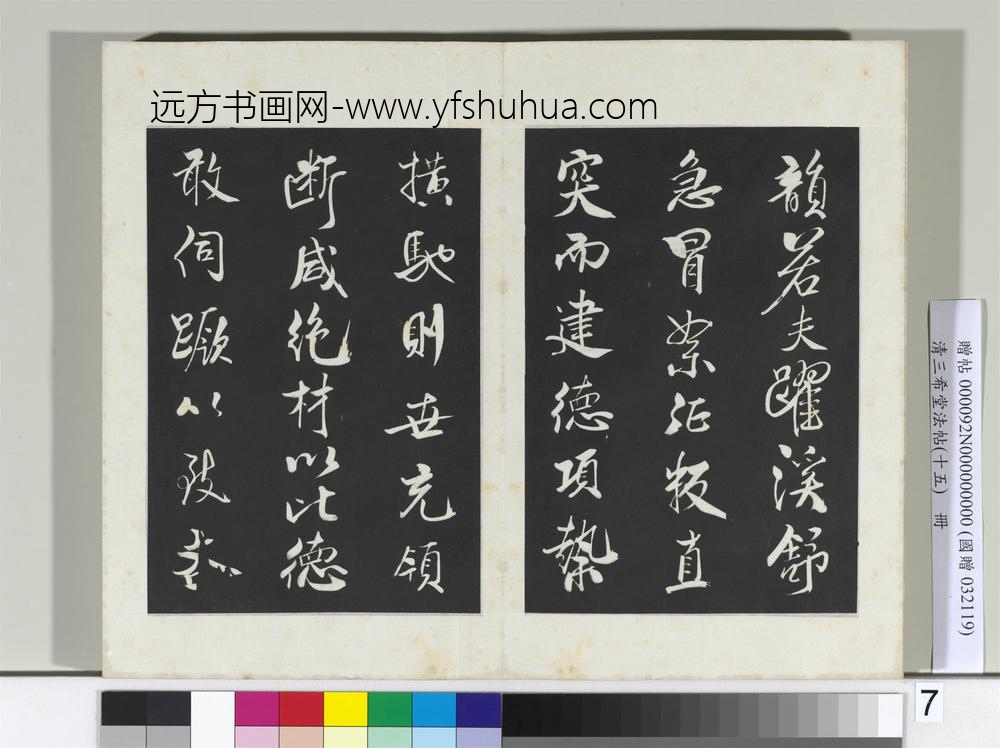 远方书画网-www.yfshuhua.com
韻若夫躍溪舒
急冒絮征叛直
突而建德項縶
橫馳則世充領
斷咸絕材以比德
敢伺蹶以致
贈帖 000092N000000000 (國贈 032119)
清三希堂法帖(十五) 冊
7